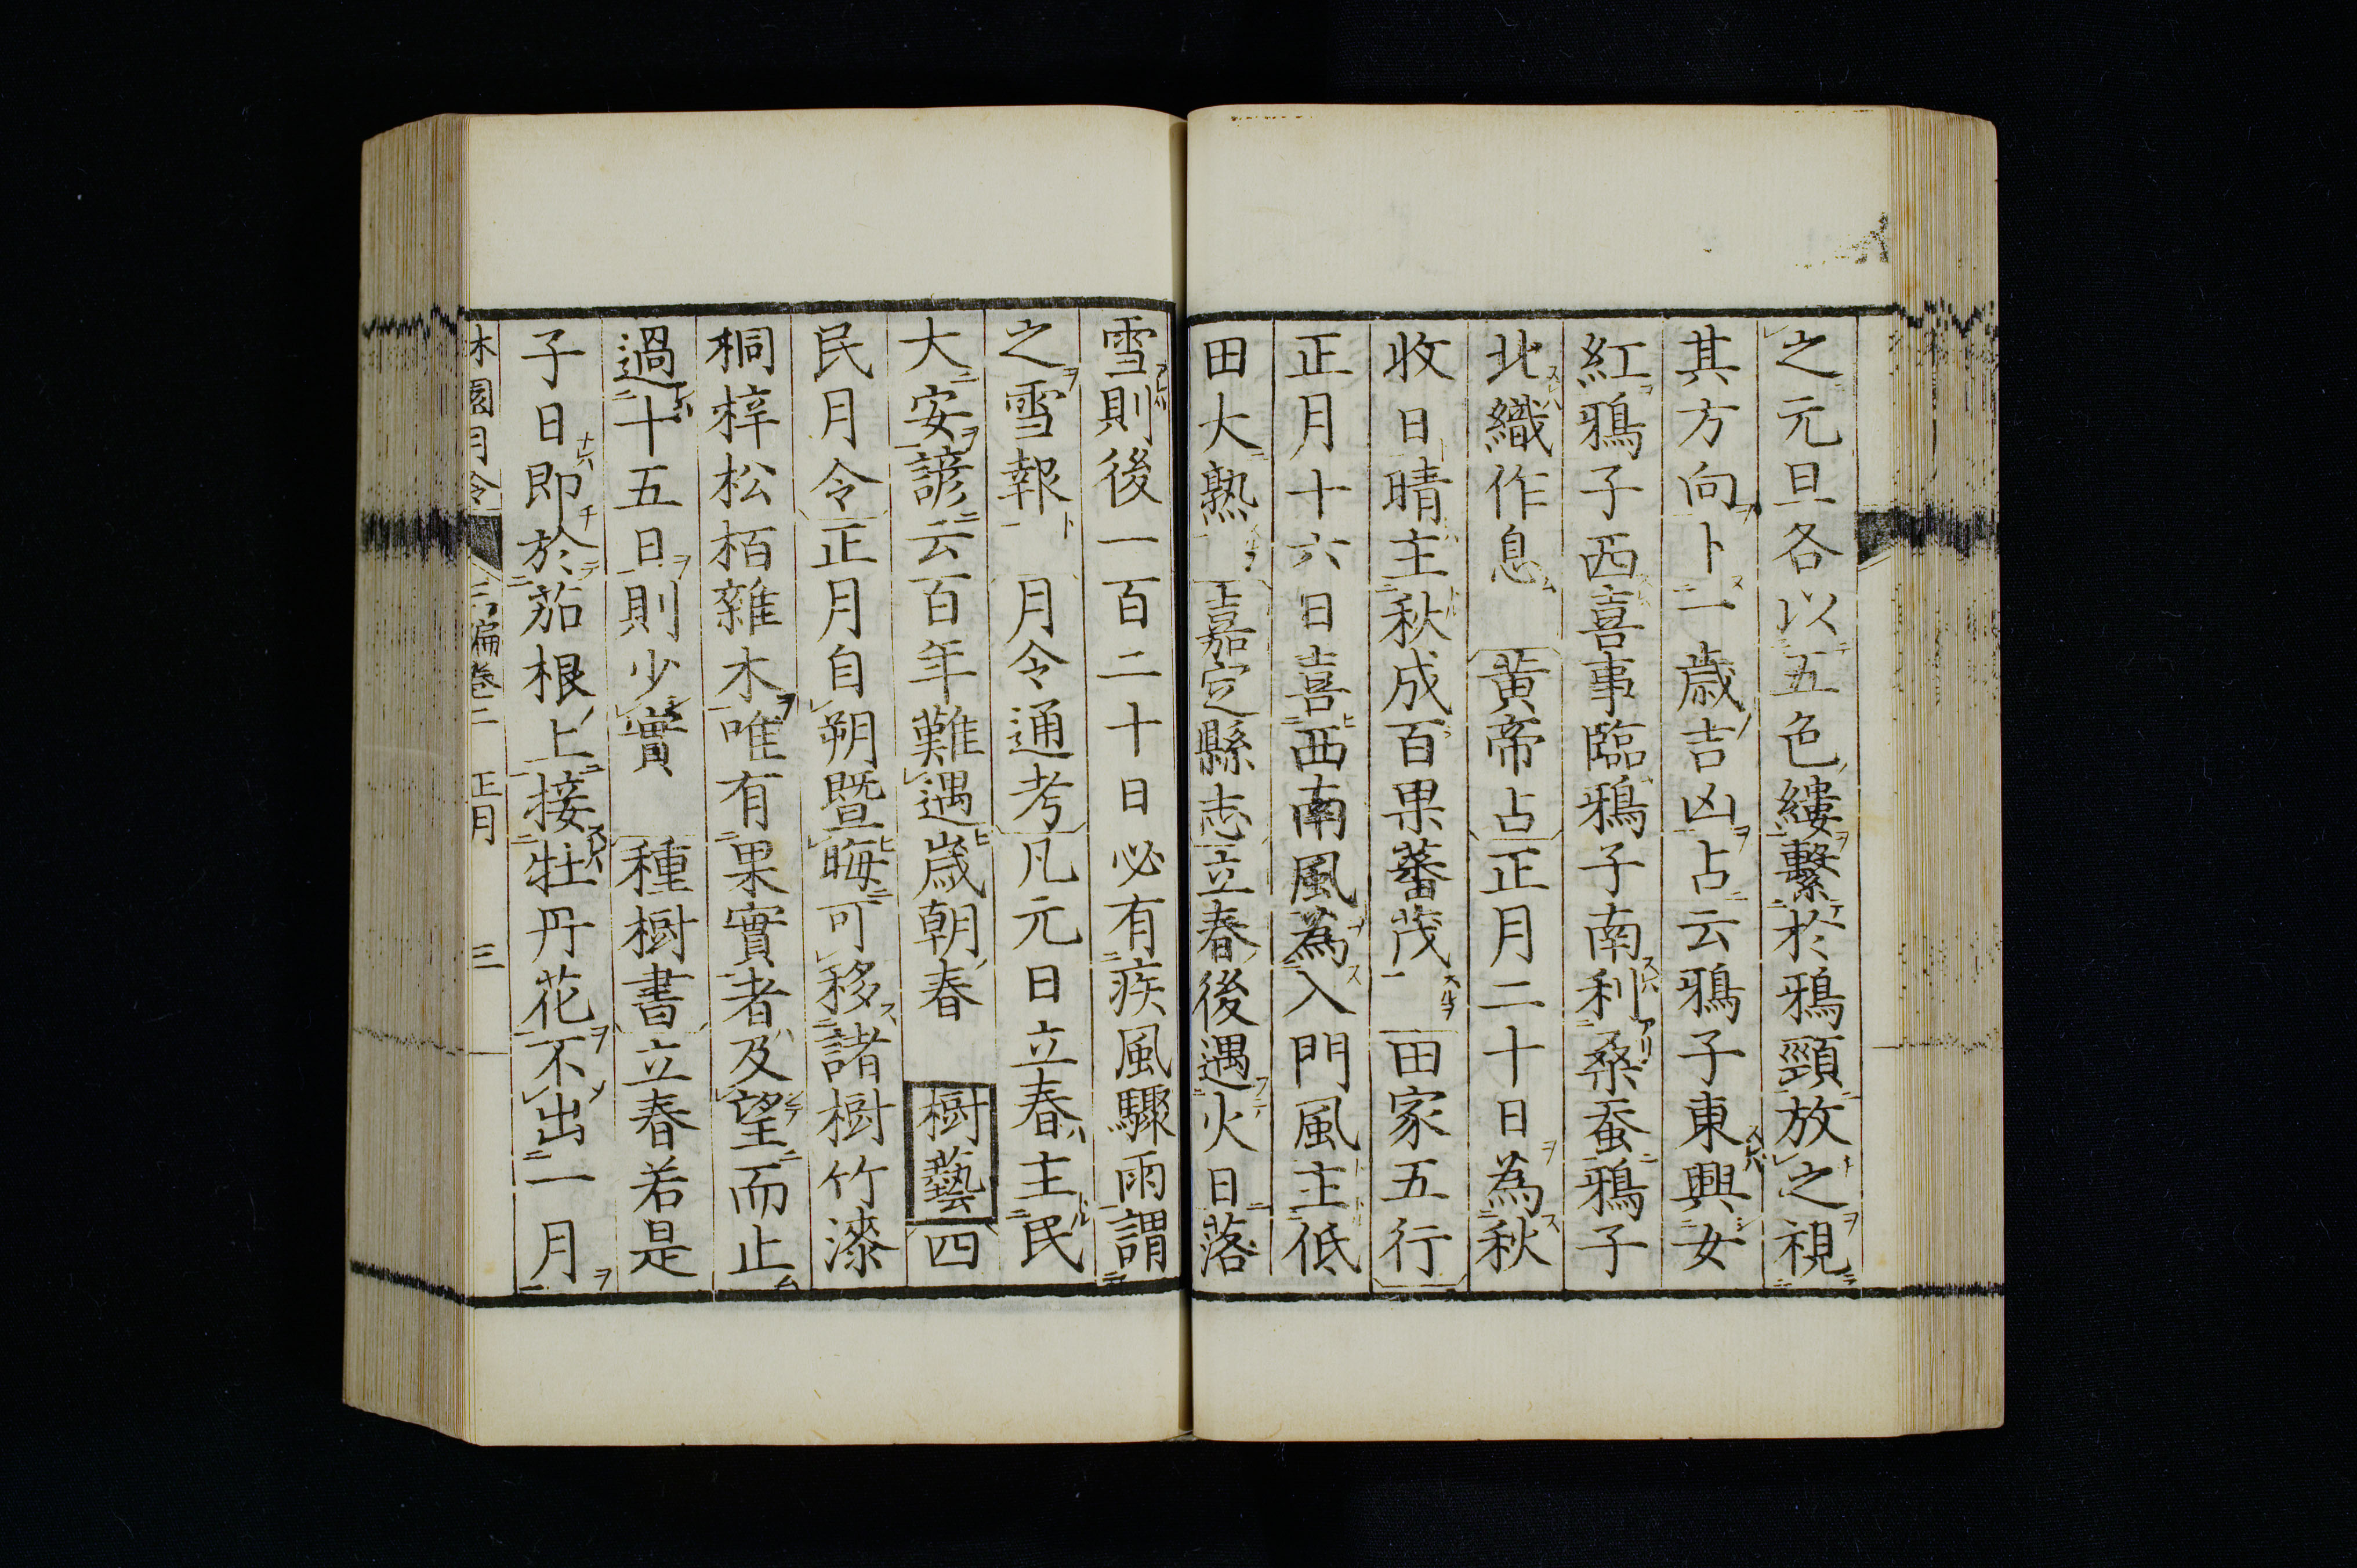 之元旦各以五色縷繫於鴉頸放之視
其方向卜一歳吉凶占云鴉子東興女
紅鴉子西喜事臨鴉子南利桑蚕鴉子
北織作息　黄帝占正月二十日為秋
收日晴主秋成百果蕃茂　田家五行
正月十六日喜西南風為入門風主低
田大熟　嘉定縣志立春後遇火日落
雪則後一百二十日必有疾風驟雨謂
之雪報　月令通考凡元日立春主民
大安諺云百年難遇歳朝春　樹藝四
民月令正月自朔暨晦可移諸樹竹漆
桐梓松栢雜木唯有果實者及望而止
過十五日則少實　種樹書立春若是
子日即於茄根上接牡丹花不出一月
園月令　編卷二　正月　三